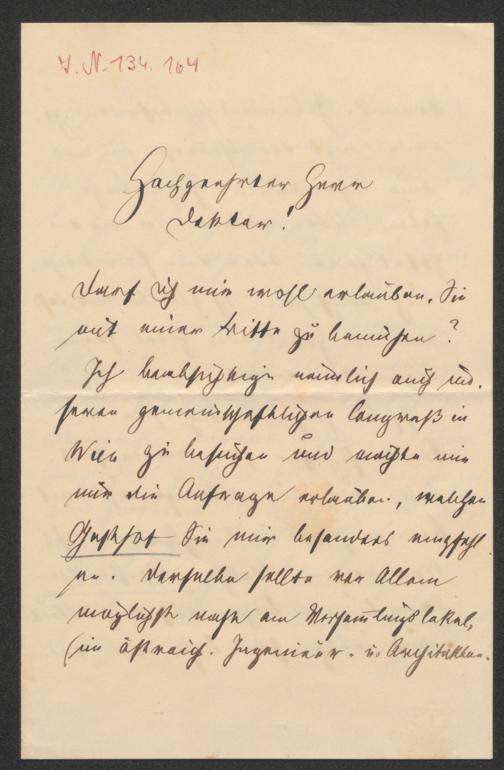 I. N. 134. 164
Hochgeehrter Herr
Doktor!
Darf ich mir wohl erlauben, Sie
mit einer Bitte zu bemühen?
Ich beabsichtige nämlich auch un-
seren gemeinschaftlichen Congreß in
Wien zu besuchen und möchte mir
nur die Anfrage erlauben, welchen
Gasthof Sie mir besonders empfehl
en. Derselbe sollte vor Allem
möglichst nahe am Versammlungslokal,
(im östreich. Ingenieur- u. Architekten-